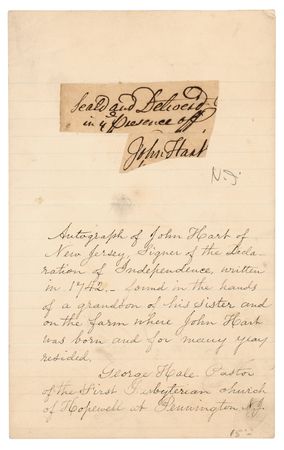 Seald and Deliverd
in ye Presence off
John Hart
N.J.
Autograph of John Hart of
New Jersey, Signer of the Decla-
ration of Independence, written
in 1742. - Found in the hands
of a grandson of his sister and
on the farm where John Hart
was born and for many years
resided.
George Hale Pastor
of the First Presbyterian church
of Hopewell at Pennington N.J.